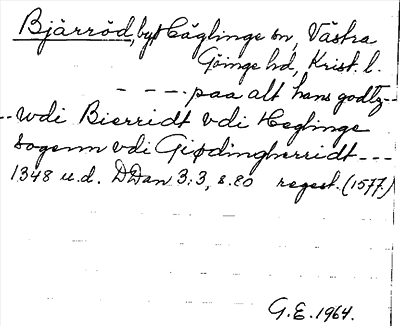 Bjärröd, by, Häglinge sn, Västra
Göinge hd, Krist. l.
- - - paa alt hans godtz--
-- wdi Bierridt vdi Heglinge
sogenn vdi Giødingherridt ---
1348 u.d. DDan 3:3, s. 20 regest. (1577.)
G.E. 1964.